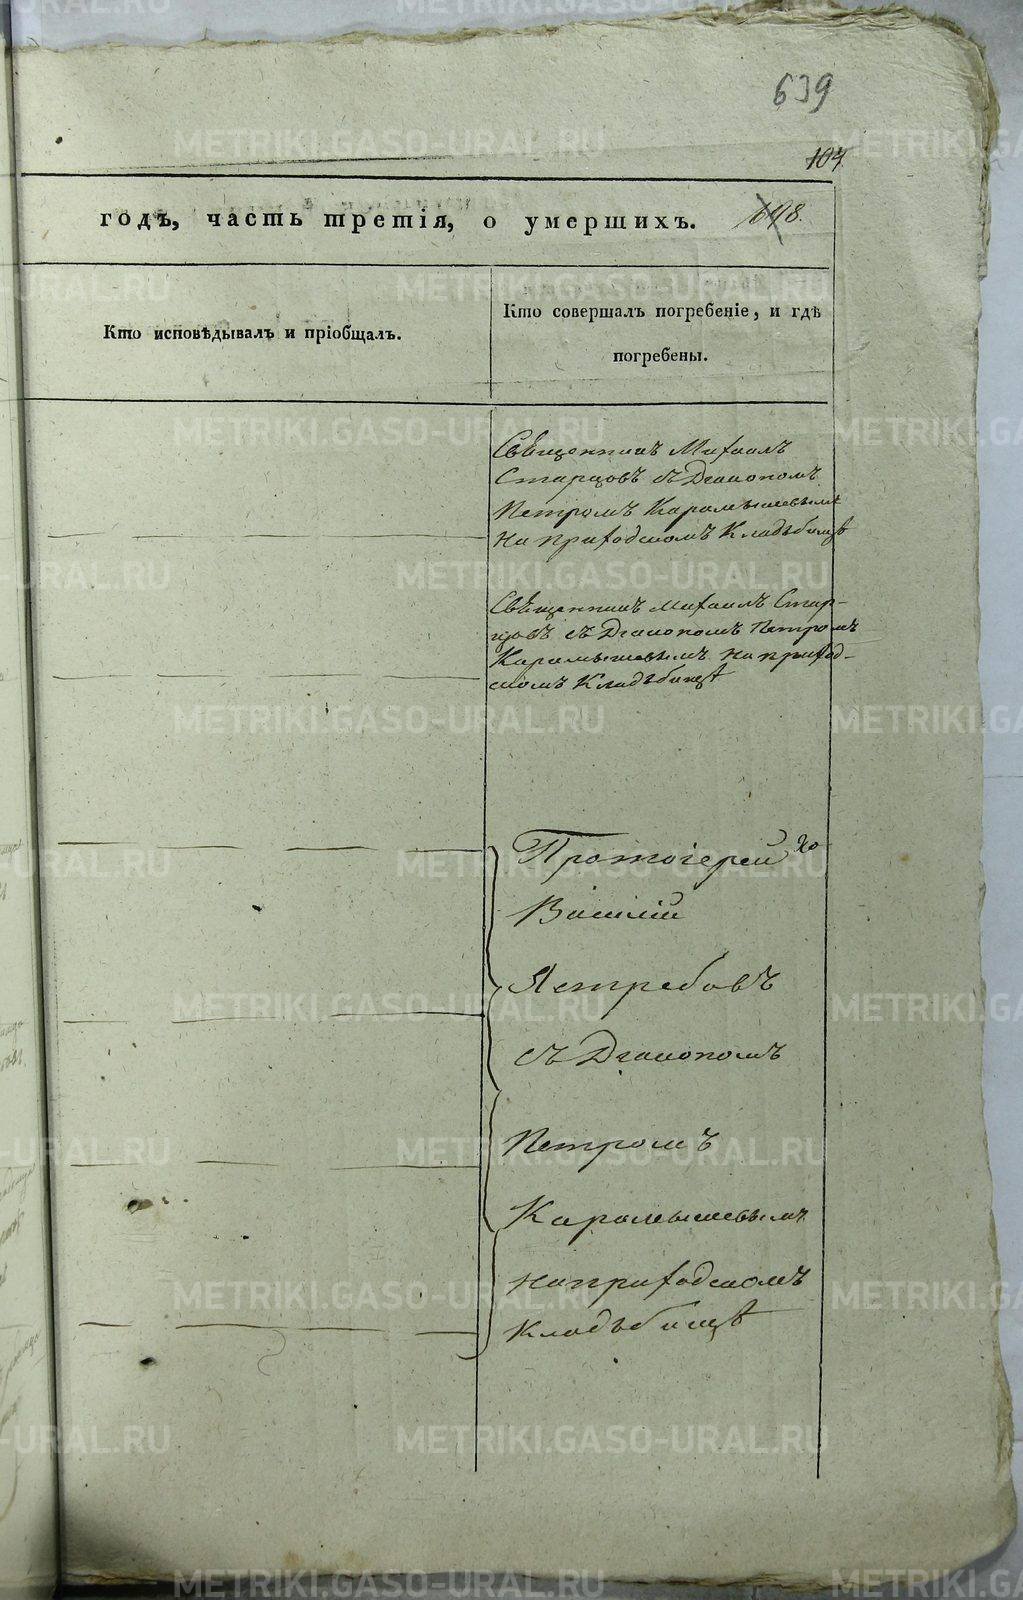 639
104
годъ, часть третія, о умершихъ. 698.
Кто исповѣдывалъ и пріобщалъ.
Кто совершалъ погребеніе, и гдѣ
погребены.
Священникъ Михаилъ
Старцовъ съ Діакономъ
Петромъ Карамышевымъ
на приходскомъ Кладъбищѣ
Священникъ Михаилъ Стар-
цовъ съ Діакономъ Петромъ
Карамышевымъ на приход-
скомъ Кладъбищѣ
Протоіерей
Василій
Ястребовъ
съ Діакономъ
Петромъ
Карамышевымъ
на приходскомъ
Кладъбищѣ
METRIKI.GASO-URAL.RU